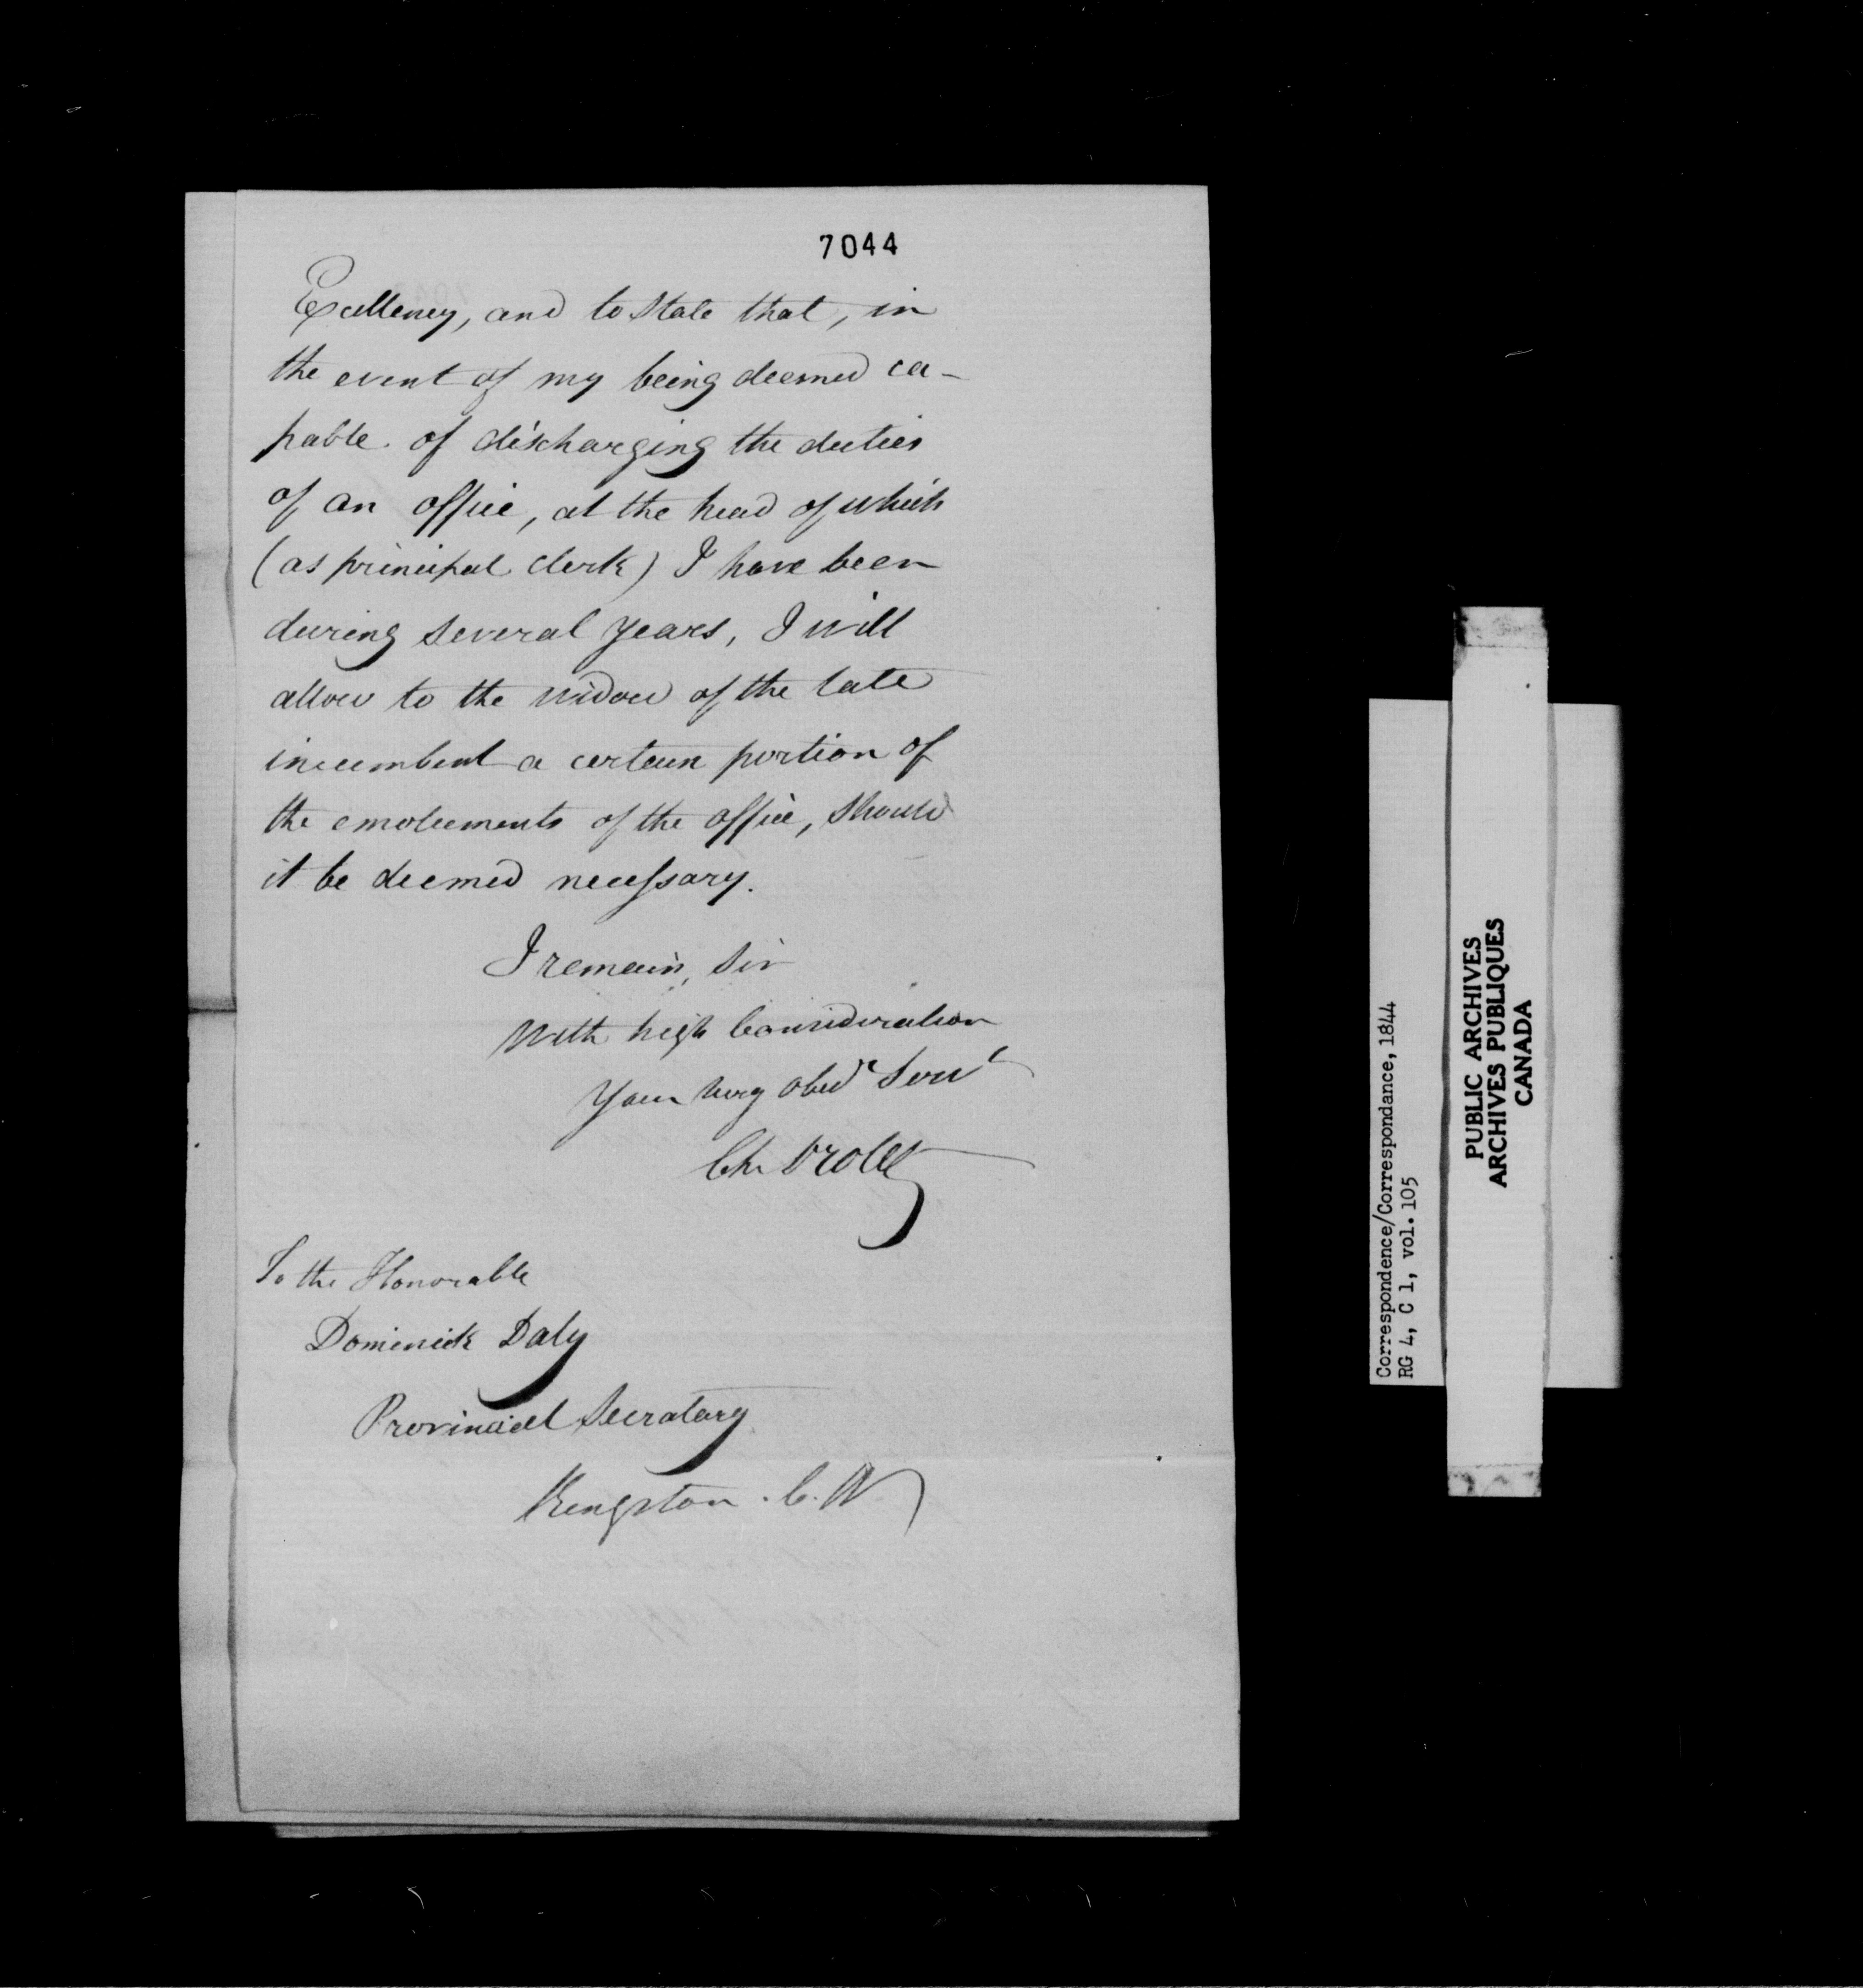 7044
Excellency, and to State that, in
the event of my being deemed ca-
pable of discharging the duties
of an office, at the head of which
(as principal clerk) I have been
during several years, I will
allow to the widow of the late
incumbent a certain portion of
the emoluments of the office, should
it be deemed necessary.
I remain, Sir
With high Consideration
Your very obedt Servt
Ch. Drolet
To the Honorable
Dominick Daly
Provincial Secretary
Kingston. C. W
Correspondence/Correspondance, 1844
RG 4, C 1, vol. 105
PUBLIC ARCHIVES
ARCHIVES PUBLIQUES
CANADA